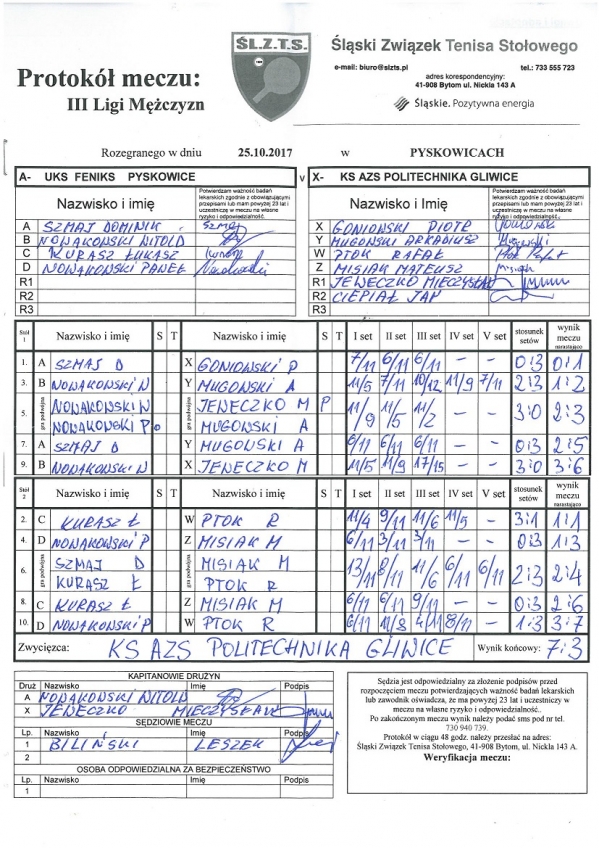 ŚL.Z.T.S.
Śląski Związek Tenisa Stołowego
e-mail: biuro@slzts.pl tel.: 733 555 723
adres korespondencyjny:
41-908 Bytom ul. Nickla 143 A
Śląskie. Pozytywna energia
Protokół meczu:
III Ligi Mężczyzn
Rozegranego w dniu 25.10.2017 w PYSKOWICACH
A- UKS FENIKS PYSKOWICE v X- KS AZS POLITECHNIKA GLIWICE
Nazwisko i Imię Potwierdzam ważność badań lekarskich zgodnie z obowiązującymi przepisami lub mam powyżej 23 lat i uczestniczę w meczu na własne ryzyko i odpowiedzialność. Nazwisko i Imię Potwierdzam ważność badań lekarskich zgodnie z obowiązującymi przepisami lub mam powyżej 23 lat i uczestniczę w meczu na własne ryzyko i odpowiedzialność.
A SZMAJ DOMINIK Szmaj X GONIOWSKI PIOTR
B NOWAKOWSKI WITOLD Y MUGOWSKI ARKADIUSZ
C KURASZ ŁUKASZ W PTOK RAFAŁ
D NOWAKOWSKI PAWEŁ Z MISIAK MATEUSZ
R1 R1 JENECZKO MIECZYSŁAW
R2 R2 CIEPIAŁ JAN
R3 R3
Stół 1 Nazwisko i imię S T Nazwisko i imię S T I set II set III set IV set V set stosunek setów wynik meczu narastająco
1. A SZMAJ D X GONIOWSKI P 7/11 6/11 6/11 - - 0:3 0:1
3. B NOWAKOWSKI W Y MUGOWSKI A 11/5 7/11 10/12 11/9 7/11 2:3 1:2
5. gra podwójna NOWAKOWSKI W gra podwójna JENECZKO M P 11/9 11/5 11/2 - - 3:0 2:3
NOWAKOWSKI P MUGOWSKI A
7. A SZMAJ D Y MUGOWSKI A 6/11 6/11 6/11 - - 0:3 2:5
9. B NOWAKOWSKI W X JENECZKO M 11/5 11/9 17/15 - - 3:0 3:6
Stół 2 Nazwisko i imię S T Nazwisko i imię S T I set II set III set IV set V set stosunek setów wynik meczu narastająco
2. C KURASZ Ł W PTOK R 11/4 9/11 11/6 11/5 - 3:1 1:1
4. D NOWAKOWSKI P Z MISIAK M 6/11 3/11 3/11 - - 0:3 1:3
6. gra podwójna SZMAJ D gra podwójna MISIAK M 13/11 8/11 11/6 6/11 6/11 2:3 2:4
KURASZ Ł PTOK R
8. C KURASZ Ł Z MISIAK M 6/11 6/11 9/11 - - 0:3 2:6
10. D NOWAKOWSKI P W PTOK R 6/11 11/8 4/11 8/11 - 1:3 3:7
Zwycięzca: KS AZS POLITECHNIKA GLIWICE Wynik końcowy: 7:3
KAPITANOWIE DRUŻYN
Druż Nazwisko Imię Podpis
A NOWAKOWSKI WITOLD
X JENECZKO MIECZYSŁAW
SĘDZIOWIE MECZU
Lp. Nazwisko Imię Podpis
1 BILIŃSKI LESZEK
2
OSOBA ODPOWIEDZIALNA ZA BEZPIECZEŃSTWO
Lp. Nazwisko Imię Podpis
1
Sędzia jest odpowiedzialny za złożenie podpisów przed
rozpoczęciem meczu potwierdzających ważność badań lekarskich
lub zawodnik oświadcza, że ma powyżej 23 lat i uczestniczy w
meczu na własne ryzyko i odpowiedzialność..
Po zakończonym meczu wynik należy podać sms pod nr tel.
730 940 739.
Protokół w ciągu 48 godz. należy przesłać na adres:
Śląski Związek Tenisa Stołowego, 41-908 Bytom, ul. Nickla 143 A.
Weryfikacja meczu: